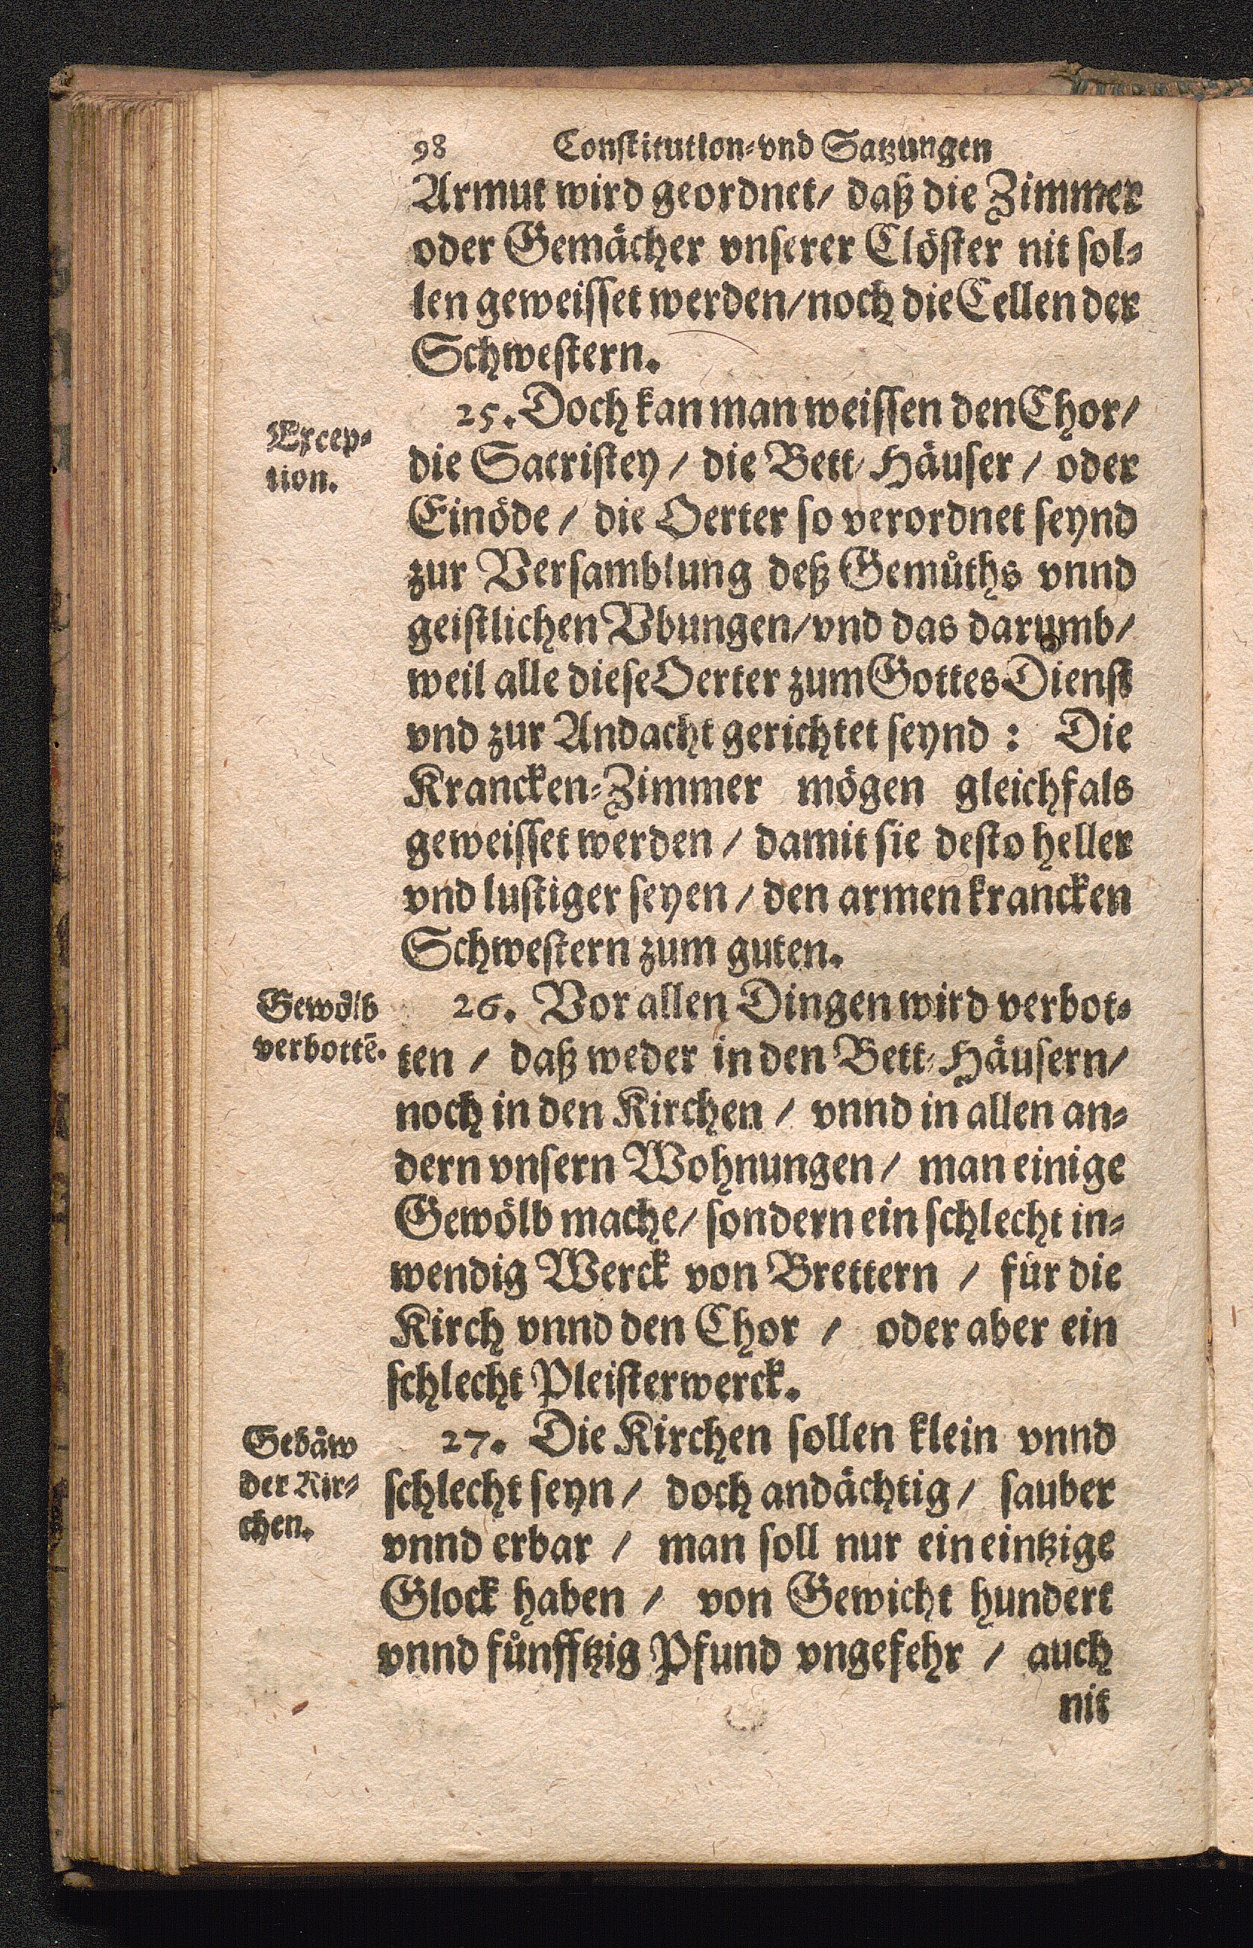 98 Constitution-vnd Satzungen
Armut wird geordnet/ daß die Zimmer
oder Gemächer vnserer Clöster nit sol-
len geweisset werden/noch die Cellen der
Schwestern.
Excep-
tion.
25. Doch kan man weissen den Chor/
die Sacristey / die Bett-Häuser / oder
Einöde / die Oerter so verordnet seynd
zur Versamblung deß Gemůths vnnd
geistlichen Vbungen/vnd das darumb/
weil alle diese Oerter zum Gottes Dienst
vnd zur Andacht gerichtet seynd : Die
Krancken-Zimmer mögen gleichfals
geweisset werden / damit sie desto heller
vnd lustiger seyen / den armen krancken
Schwestern zum guten.
Gewölb
verbottē.
26. Vor allen Dingen wird verbot-
ten / daß weder in den Bett-Häusern/
noch in den Kirchen / vnnd in allen an-
dern vnsern Wohnungen/ man einige
Gewölb mache/ sondern ein schlecht in-
wendig Werck von Brettern / für die
Kirch vnnd den Chor / oder aber ein
schlecht Pleisterwerck.
Gebäw
der Kir-
chen.
27. Die Kirchen sollen klein vnnd
schlecht seyn/ doch andächtig/ sauber
vnnd erbar / man soll nur ein eintzige
Glock haben / von Gewicht hundert
vnnd fůnfftzig Pfund vngefehr / auch
nit